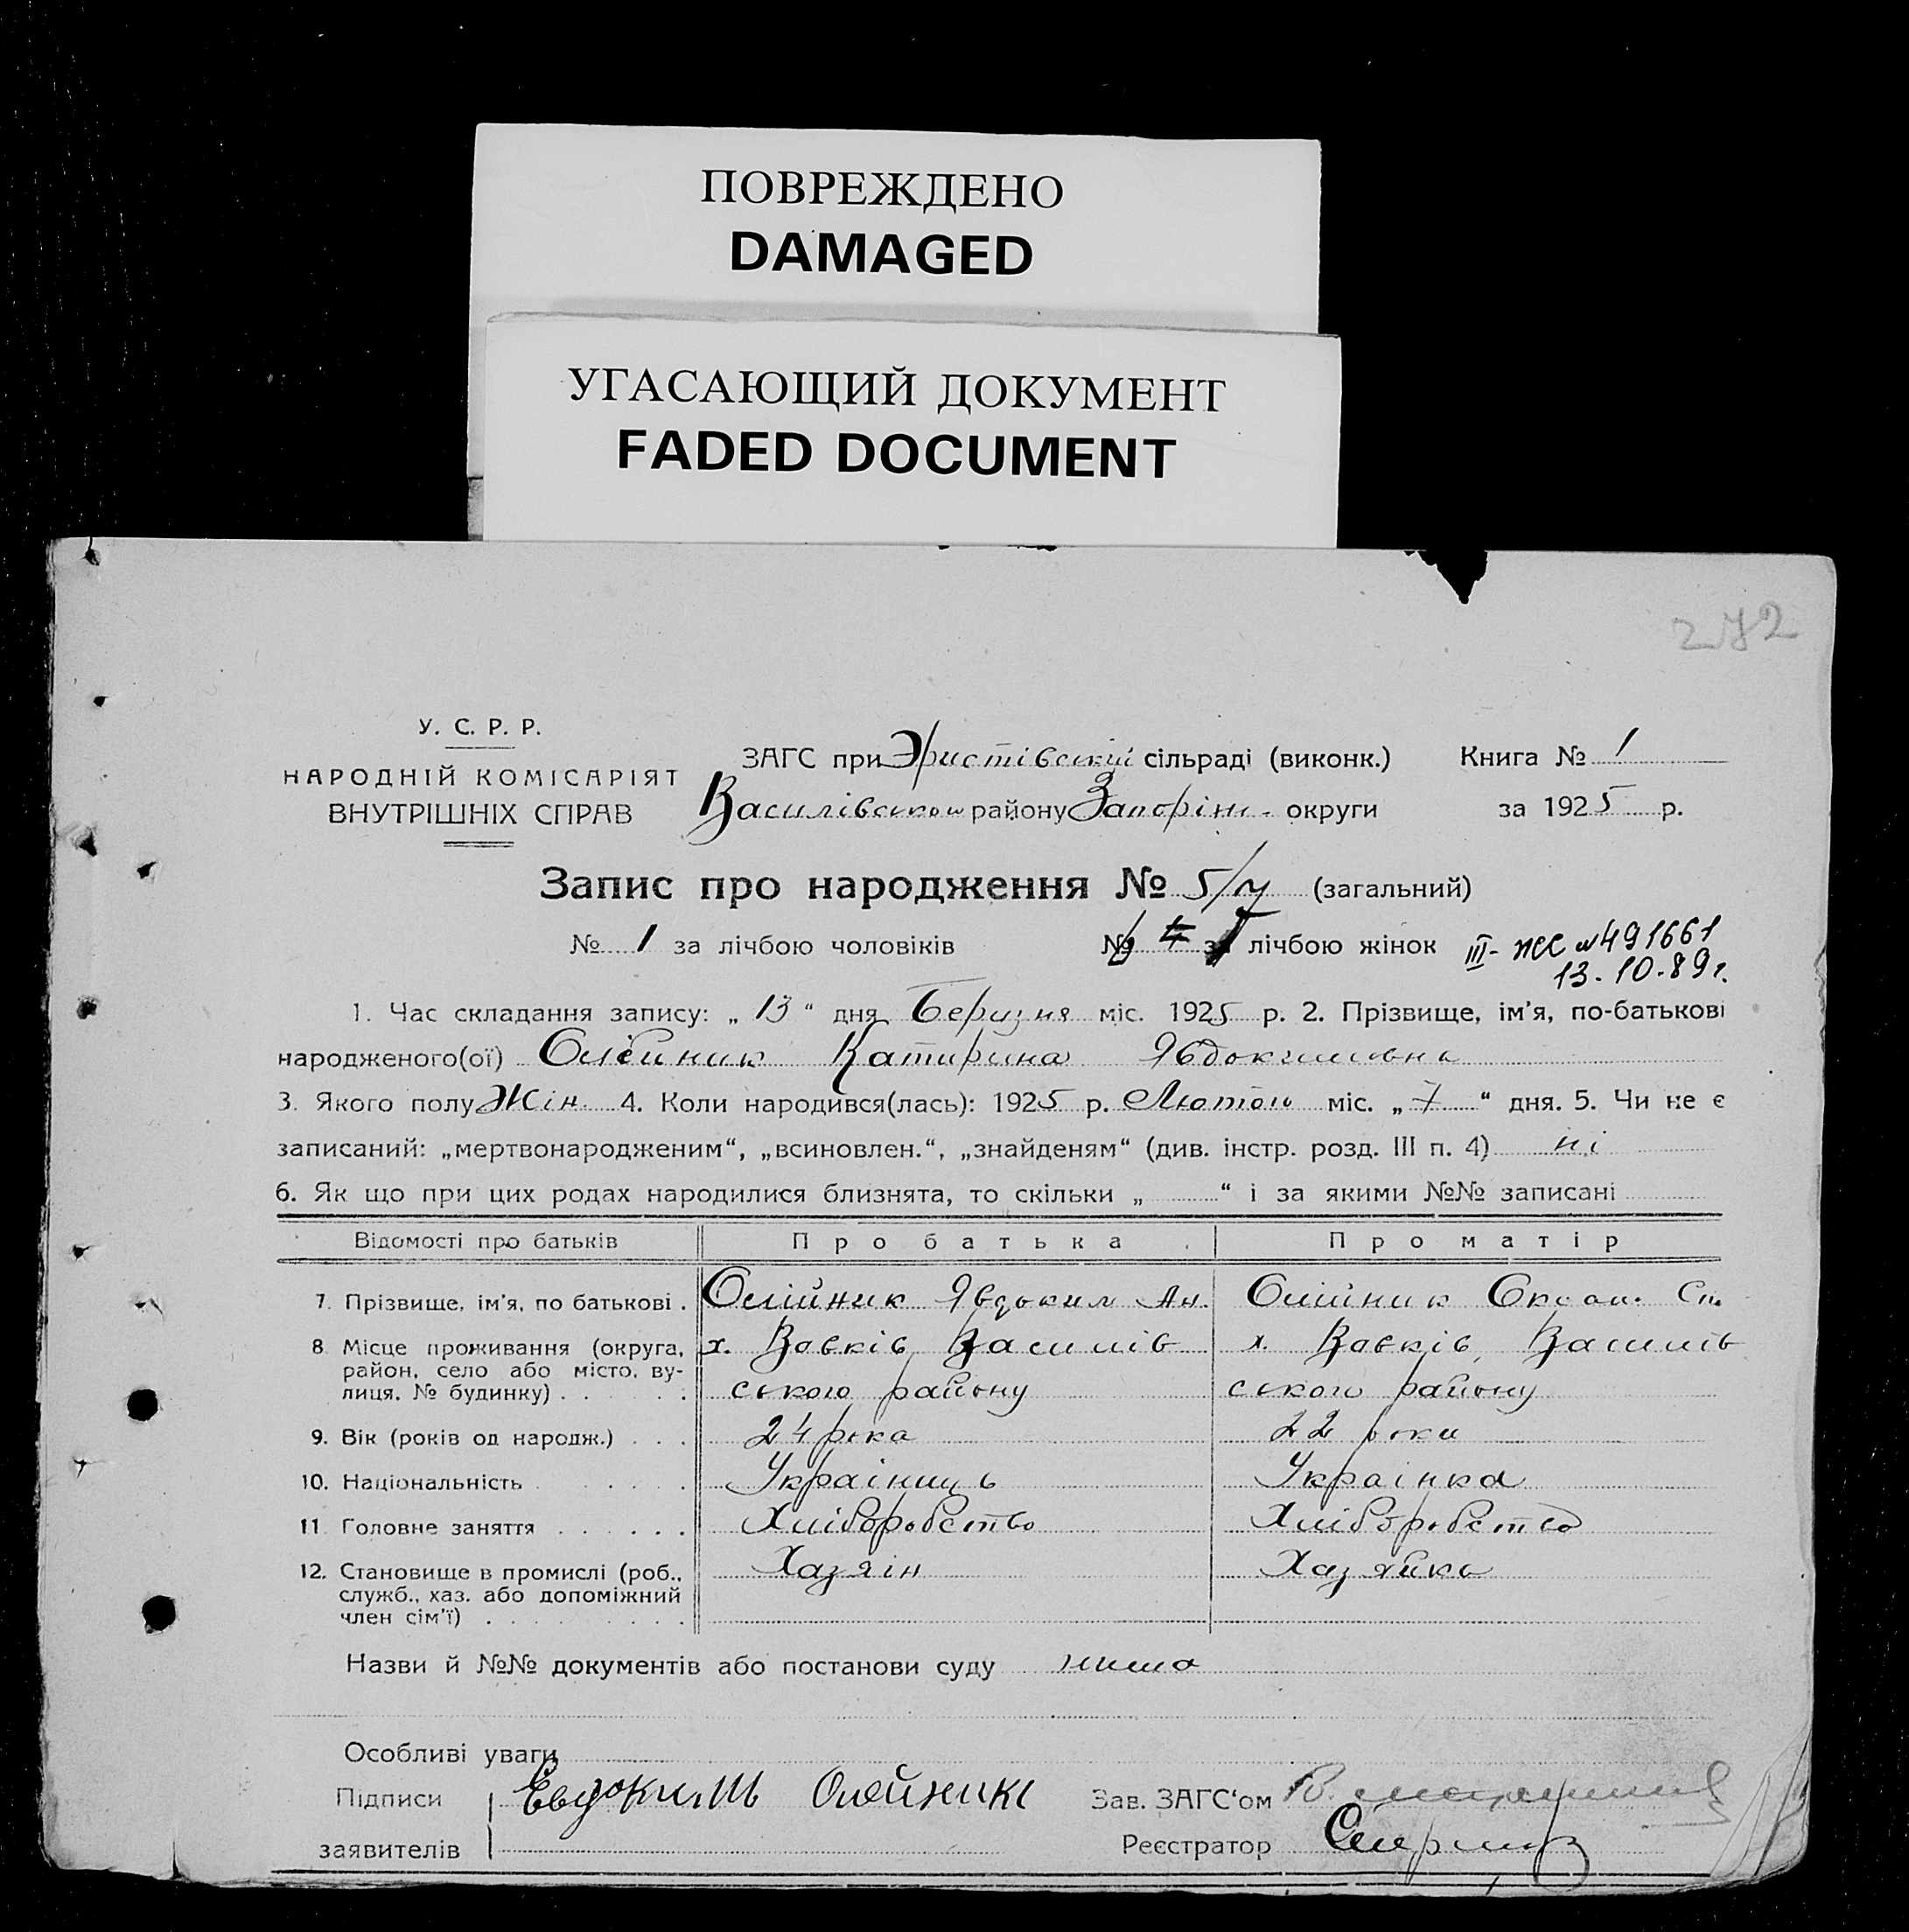 ПОВРЕЖДЕНО
DAMAGED
УГАСАЮЩИЙ ДОКУМЕНТ
FADED DOCUMENT
272
У. С. Р. Р.
НАРОДНІЙ КОМІСАРІЯТ
ВНУТРІШНІХ СПРАВ
ЗАГС при Эристівській сільраді (виконк.) Книга № 1
Василівського району Запоріж. округи за 1925 р.
Запис про народження № 5/ч (загальний)
№ 1 за лічбою чоловіків № 4 за лічбою жінок III-ЖС №491661
13.10.89г.
1. Час складання запису: „ 13 “ дня Березня міс. 1925 р. 2. Прізвище, ім’я, по-батькові
народженого(ої) Олійник Катирина Явдокимовна
3. Якого полу Жін. 4. Коли народився(лась): 1925 р. Лютого міс. „ 7 “ дня. 5. Чи не є
записаний: „мертвонародженим“, „всиновлен.“, „знайденям“ (див. інстр. розд. III п. 4) ні
6. Як що при цих родах народилися близнята, то скільки „ “ і за якими №№ записані
Відомості про батьків Про батька Про матір
7. Прізвище, ім’я, по батькові . Олійник Явдоким Ан. Олійник Оксан. Сп.
8 Місце проживання (округа, х. Вовків, Василів х. Вовків, Василів
район, село або місто, ву-
лиця, № будинку) . . . . ського району ського району
9. Вік (років од народж.) . . . 24 рока 22 роки
10. Національність . . . . . Україниць Українка
11 Головне заняття . . . . . . Хліборобство Хліборобство
12. Становище в промислі (роб., Хазяін Хазяйка
служб., хаз. або допоміжний
член сім’ї) . . . . . . . . .
Назви й №№ документів або постанови суду нима
Особливі уваги
Підписи Евдокимъ Олейникъ Зав. ЗАГС‘ом
заявителів Реєстратор